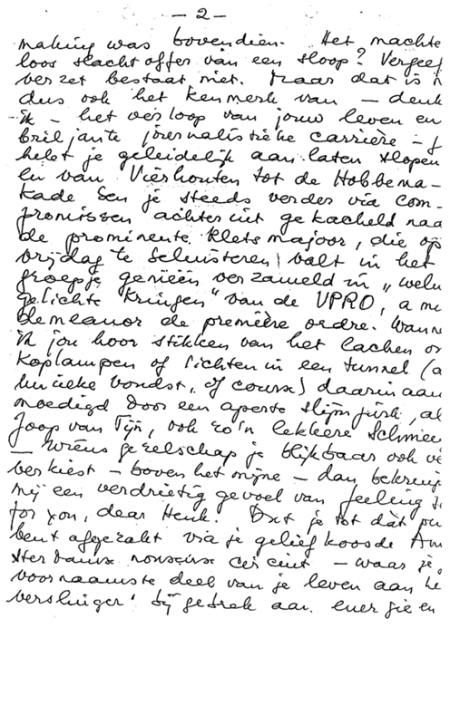 — 2 —
making was bovendien. Het machte
loos slachtoffer van een sloop? Vergeef
verzet bestaat niet. Maar dat is n
dus ook het kenmerk van — denk
ik — het verloop van jouw leven en
briljante journalistieke carrière —
hebt je geleidelijk aan laten slopen
en van Vierhouten tot de Hobbema-
kade ben je steeds verder via com-
promissen achteruit gekacheld naa
de prominente kletsmajoor, die op
vrijdag te beluisteren valt in het
groepje genieën verzameld in „welin
gelichte Kringen" van de VPRO, a me
demeanor de première ordre. Wanne
ik jou hoor stikken van het lachen o
koplampen of lichten in een tunnel (a
unieke vondst, of course) daarin aan
moedigd door een aperte slijmjurk, al
Joop van Tijn, ook zo'n lekkere Schmie
— wiens gezelschap je blijkbaar ook ve
verkiest — boven het mijne — dan bekruip
mij een verdrietig gevoel van feeling s
for you, dear Henk. Dat je tot dàt pu
bent afgezakt via je geliefkoosde Am
sterdamse nonsense circuit — waar je
voornaamste deel van je leven aan he
verslinger' bij gebrek aan energie en